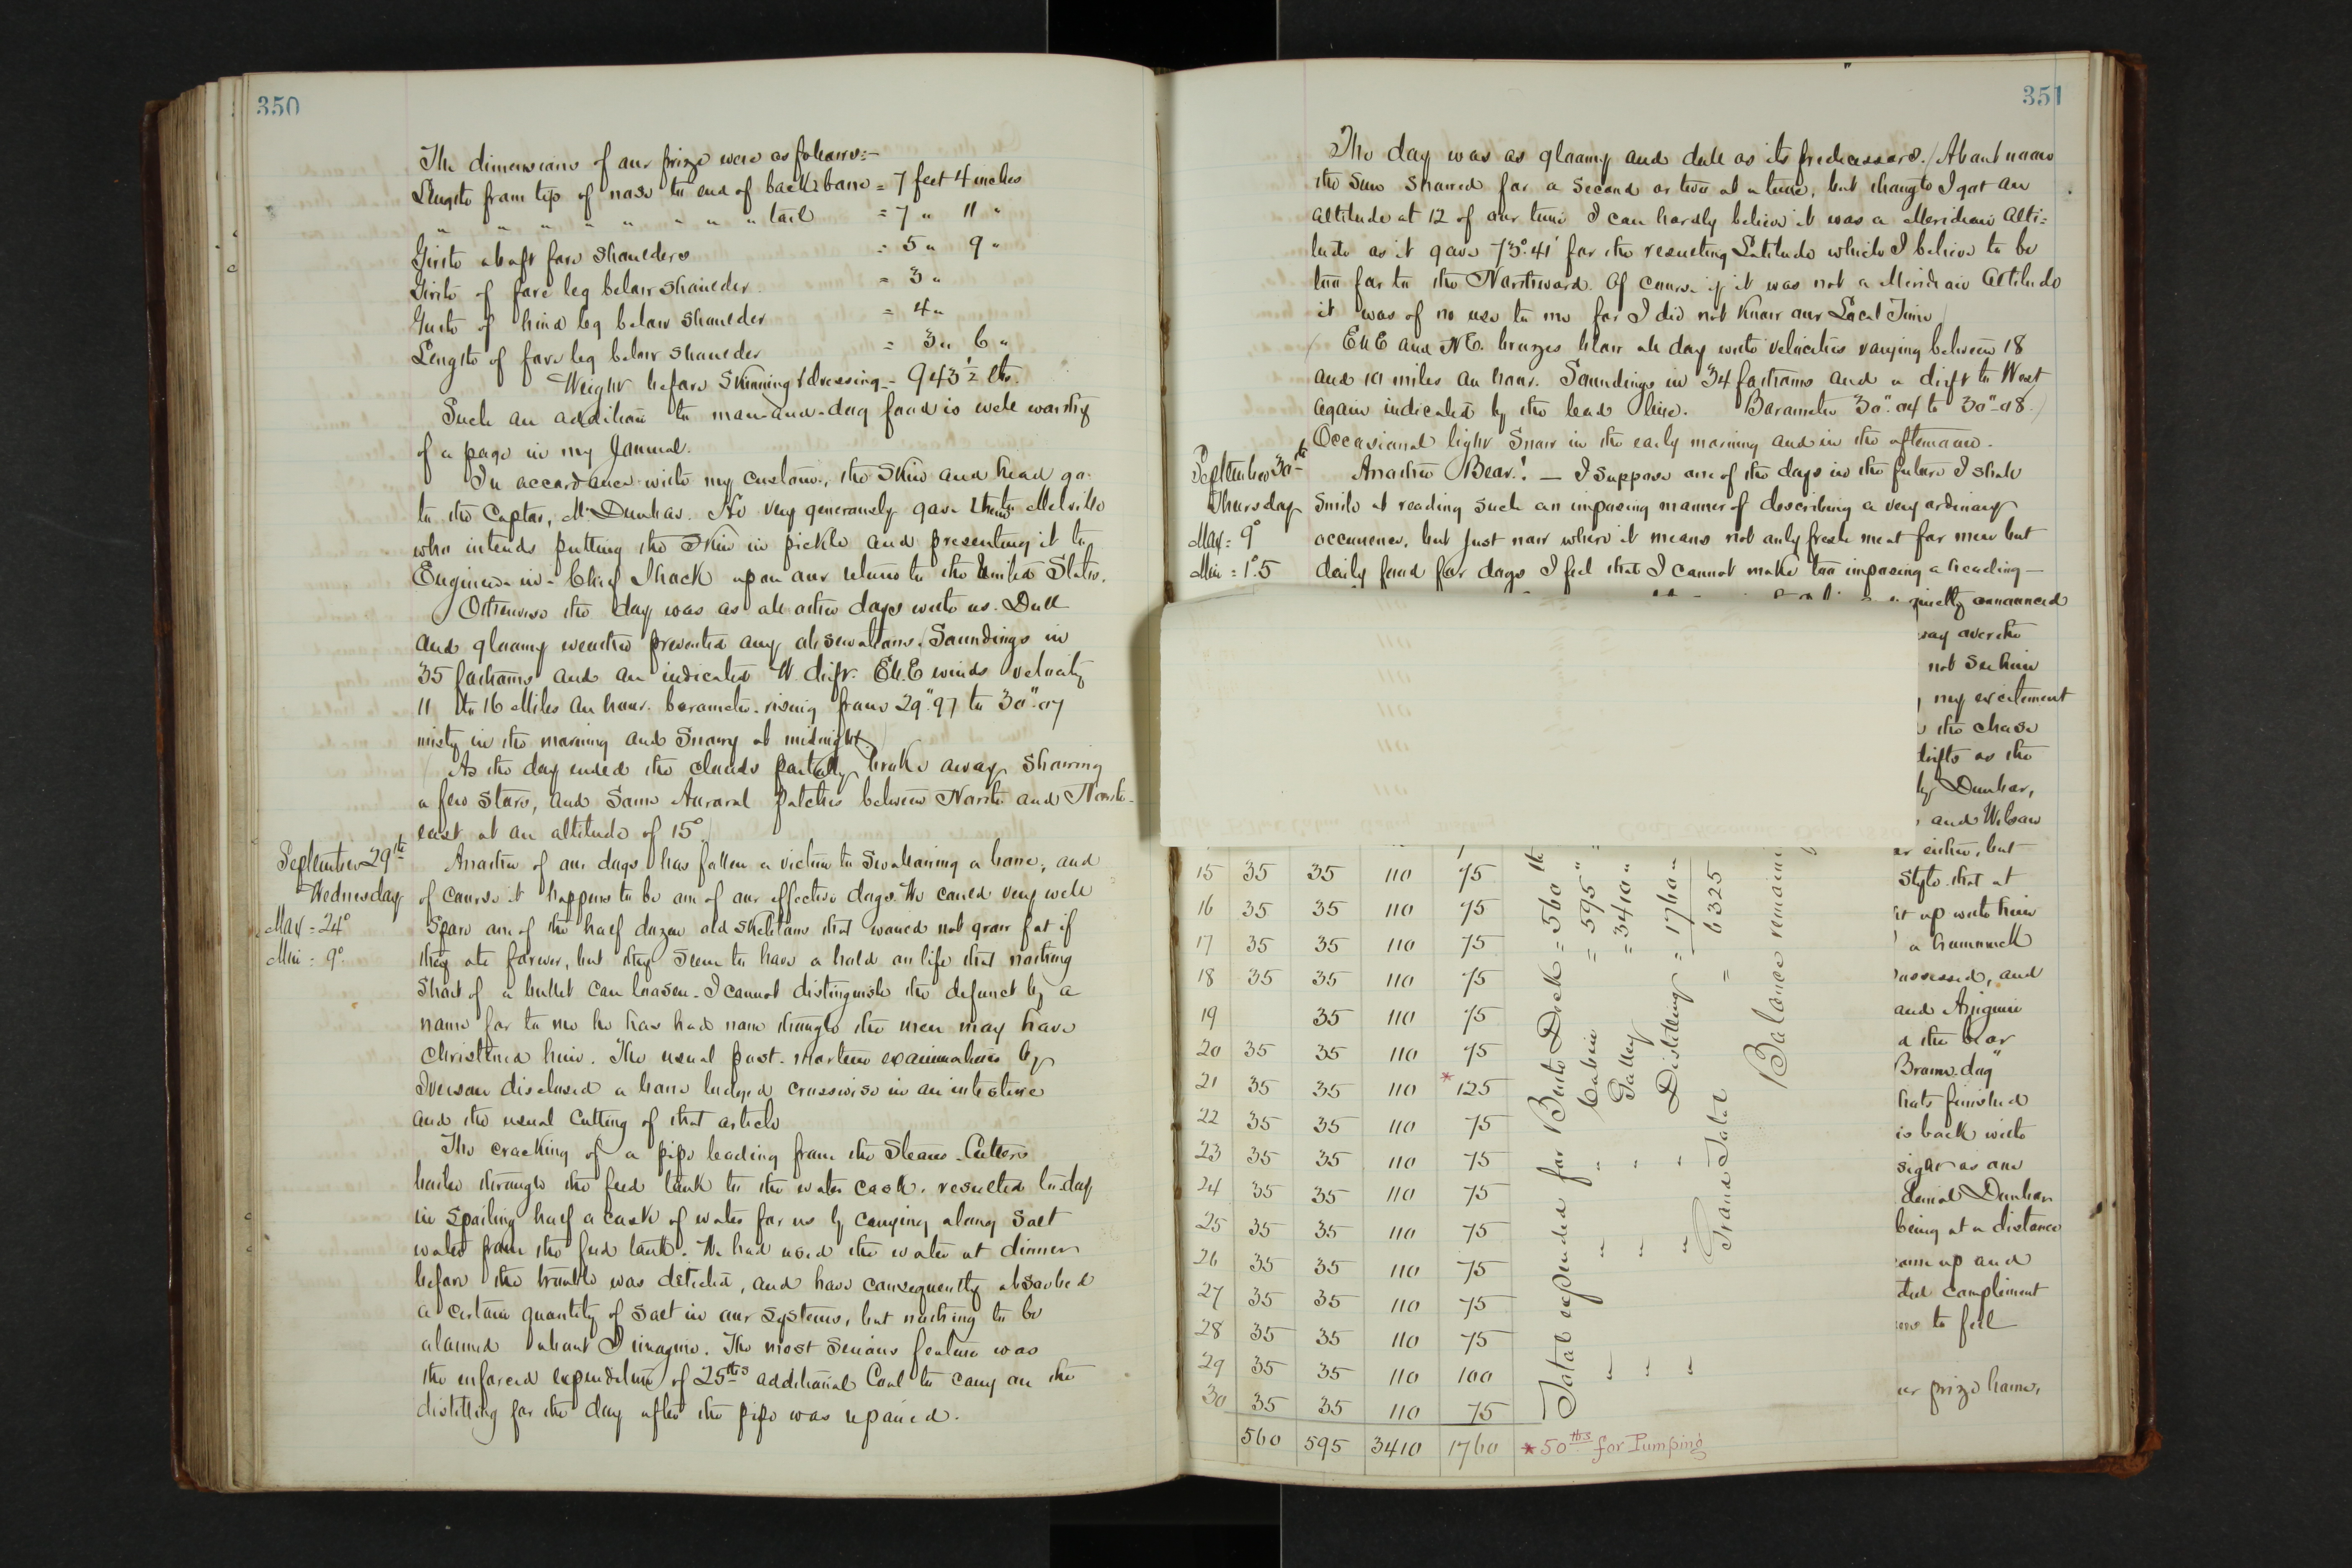 350
The dimensions of our prize were as follows:-
Length from tip of nose to end of back bone = 7 feet 4 inches
" " " " " " " " tail = 7 " 11 "
Girth abaft fore shoulders = 5 " 9 "
Girth of fore leg below shoulder = 3 "
Girth of hind leg below shoulder = 4 "
Length of fore leg below shoulder = 3 " 6 "
Weight before skinning & dressing - 943 1/2 lbs.
Such an addition to man-and-dog food is well worthy
of a page in my Journal.
In accordance with my custom, the skin and head go
to the Captor, Mr. Dunbar. He very generously gave them to Melville
who intends putting the skin in pickle and presenting it to
Engineer-in-Chief Shock upon our return to the United States.
Otherwise the day was as all other days with us. Dull
and gloomy weather prevented any observations. (Soundings in
35 fathoms and an indicated W. drift. E.N.E winds velocity
11 to 16 Miles an hour. barometer rising from 29".97 to 30".07
misty in the morning and snowy at midnight.)
As the day ended the clouds partially broke away showing
a few stars, and some Auroral patches between North and North-
east at an altitude of 15°.
September 29th
Wednesday
Max = 24°
Min = 9°
Another of our dogs has fallen a victim to swallowing a bone, and
of course it happens to be one of our effective dogs. We could very well
spare one of the half dozen old skeletons that would not grow fat if
they ate forever, but they seem to have a hold on life that nothing
short of a bullet can loosen. I cannot distinguish the defunct by a
name for to me he has had none though the men may have
christened him. The usual post-mortem examination by
Iverson disclosed a bone lodged crosswise in an intestine
and the usual cutting of that article
The cracking of a pipe leading from the Steam-Cutters
boiler through the feed tank to the water cask, resulted to-day
in spoiling half a cask of water for us by carrying along salt
water from the feed tank. We had used the water at dinner
before the trouble was detected, and have consequently absorbed
a certain quantity of salt in our systems, but nothing to be
alarmed about I imagine. The most serious feature was
the enforced expenditure of 25 lbs additional Coal to carry on the
distilling for the day after the pipe was repaired.
351
The day was as gloomy and dull as its predecessors. (About noon
the sun showed for a second or two at a time, but though I got an
altitude at 12 of our time I can hardly believe it was a Meridian Alti-
tude as it gave 73°.41' for the resulting Latitude which I believe to be
too far to the Northward. Of course if it was not a Meridian Altitude
it was of no use to me for I did not know our Local Time)
(E.N.E and N.E. breezes blew all day with velocities varying between 18
and 10 miles an hour. Soundings in 34 fathoms and a drift to West
again indicated by the lead line. Barometer 30".04 to 30".08.)
Occasional light snow in the early morning and in the afternoon.
September 30th
Thursday
Max = 9°
Min = 1°.5
Another Bear! — I suppose one of the days in the future I shall
smile at reading such an imposing manner of describing a very ordinary
occurrence, but just now where it means not only fresh meat for men but
daily food for dogs I feel that I cannot make too imposing a heading —
quietly announced
way over the
not see him
my excitement
the chase
drifts as the
by Dunbar,
and Wilson
either, but
style that at
it up with him
a hummock
possessed, and
and Aniguin
the bear
Brown dog"
that finished
is back with
sight as one
denial Dunbar
being at a distance
came up and
compliment
to feel
our prize home,
15 35 35 110 75
16 35 35 110 75
17 35 35 110 75
18 35 35 110 75
19 35 110 75
20 35 35 110 75
21 35 35 110 *125
22 35 35 110 75
23 35 35 110 75
24 35 35 110 75
25 35 35 110 75
26 35 35 110 75
27 35 35 110 75
28 35 35 110 75
29 35 35 110 100
30 35 35 110 75
560 595 3410 1760
* 50 lbs for Pumping
Total expended for Berth Deck = 560 lb
" " Cabin = 595 "
" " Galley = 3410 "
" " Distilling = 1760 "
Grand Total = 6325
Balance remaining